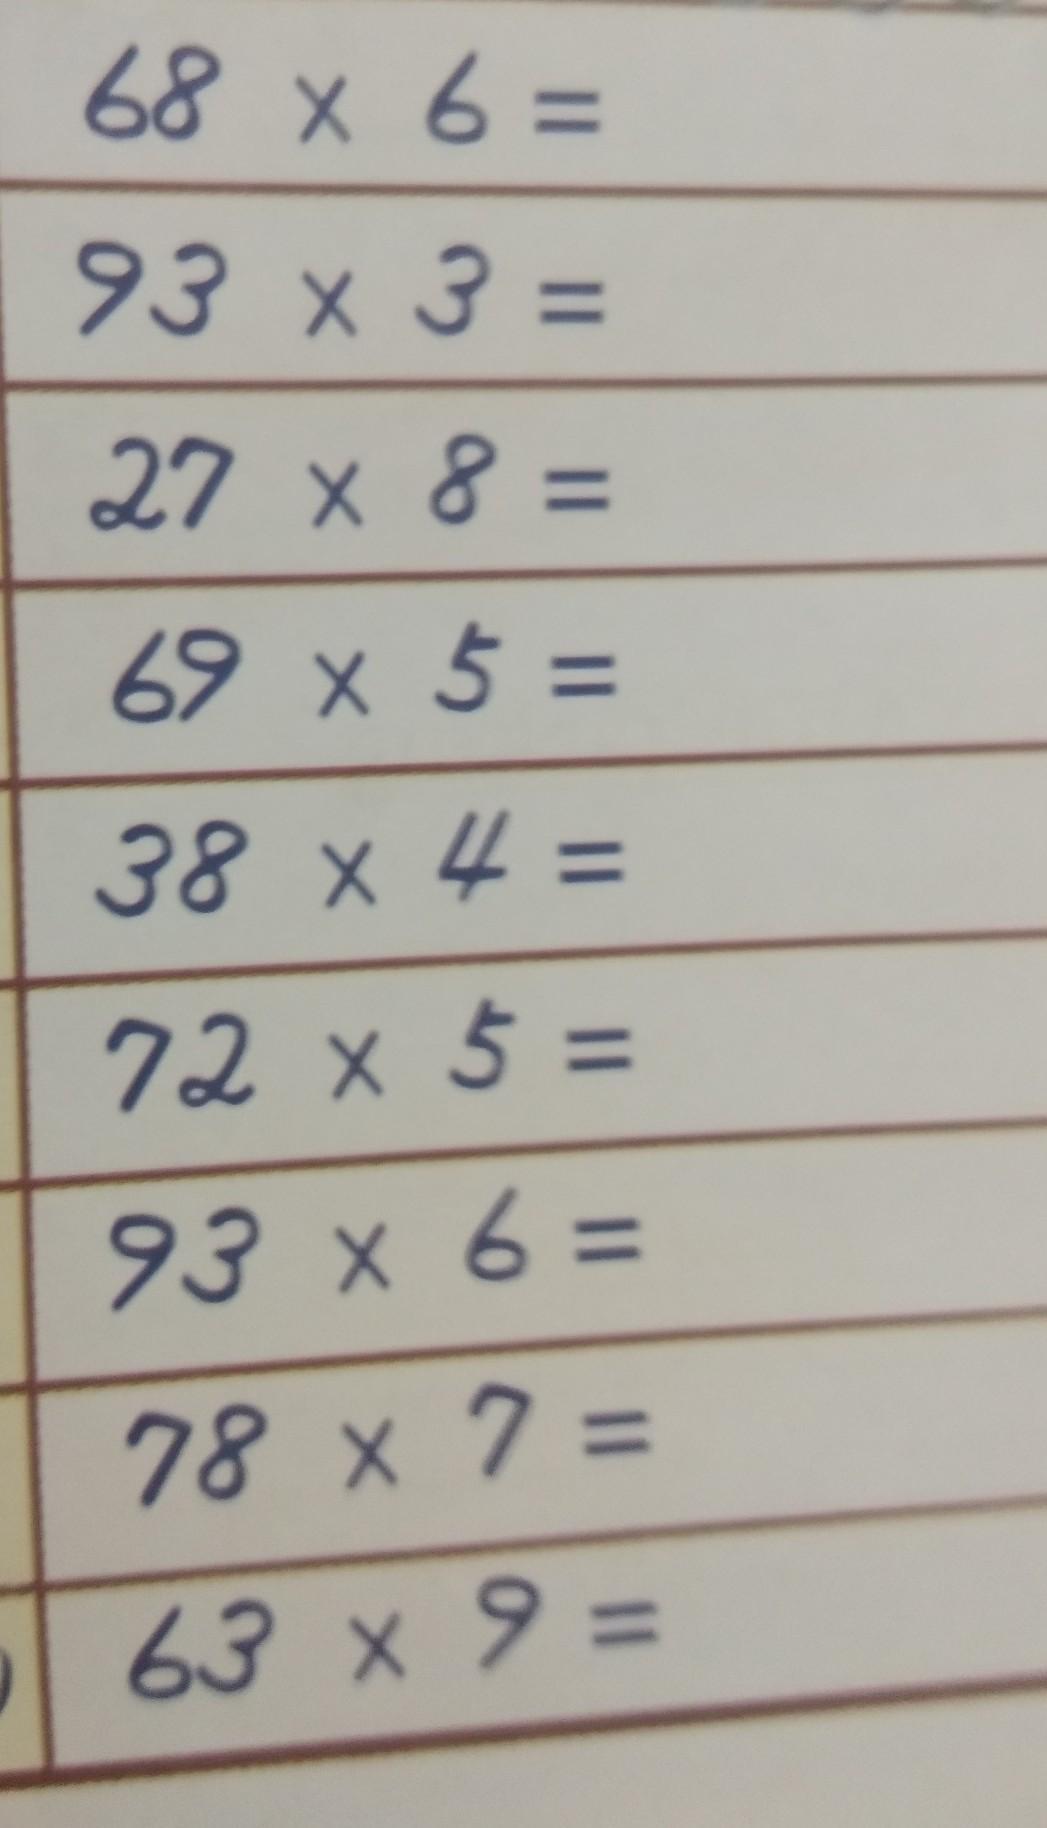 68 × 6 =
93 × 3 =
27 × 8 =
69 × 5 =
38 × 4 =
72 × 5 =
93 × 6 =
78 × 7 =
63 × 9 =